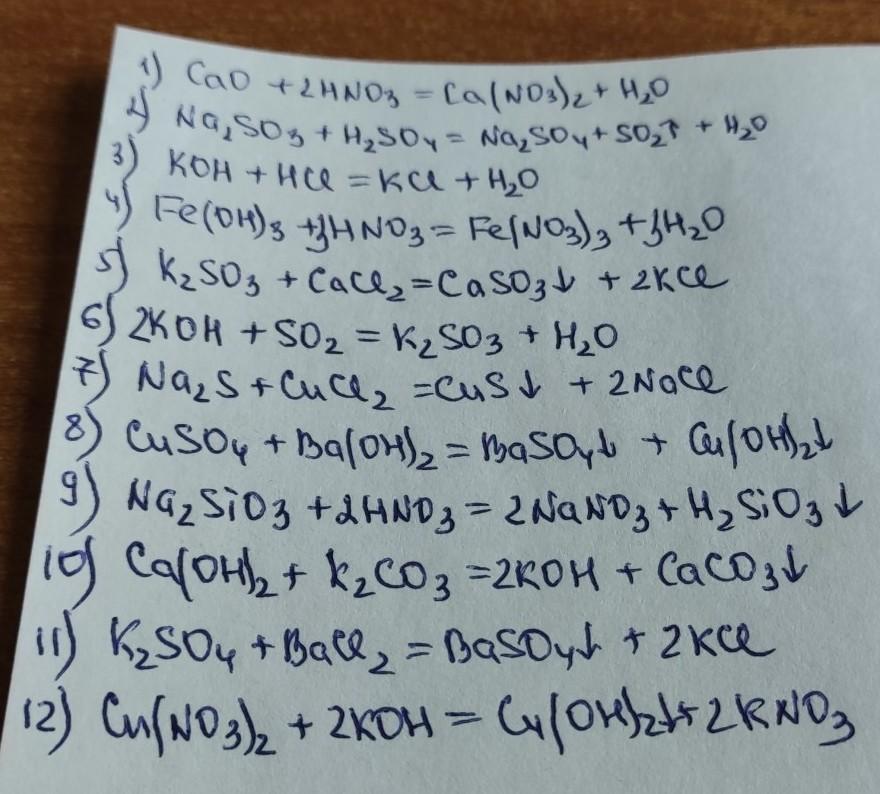 1) CaO + 2HNO₃ = Ca(NO₃)₂ + H₂O
2) Na₂SO₃ + H₂SO₄ = Na₂SO₄ + SO₂↑ + H₂O
3) KOH + HCl = KCl + H₂O
4) Fe(OH)₃ + 3HNO₃ = Fe(NO₃)₃ + 3H₂O
5) K₂SO₃ + CaCl₂ = CaSO₃↓ + 2KCl
6) 2KOH + SO₂ = K₂SO₃ + H₂O
7) Na₂S + CuCl₂ = CuS↓ + 2NaCl
8) CuSO₄ + Ba(OH)₂ = BaSO₄↓ + Cu(OH)₂↓
9) Na₂SiO₃ + 2HNO₃ = 2NaNO₃ + H₂SiO₃↓
10) Ca(OH)₂ + K₂CO₃ = 2KOH + CaCO₃↓
11) K₂SO₄ + BaCl₂ = BaSO₄↓ + 2KCl
12) Cu(NO₃)₂ + 2KOH = Cu(OH)₂↓ + 2KNO₃